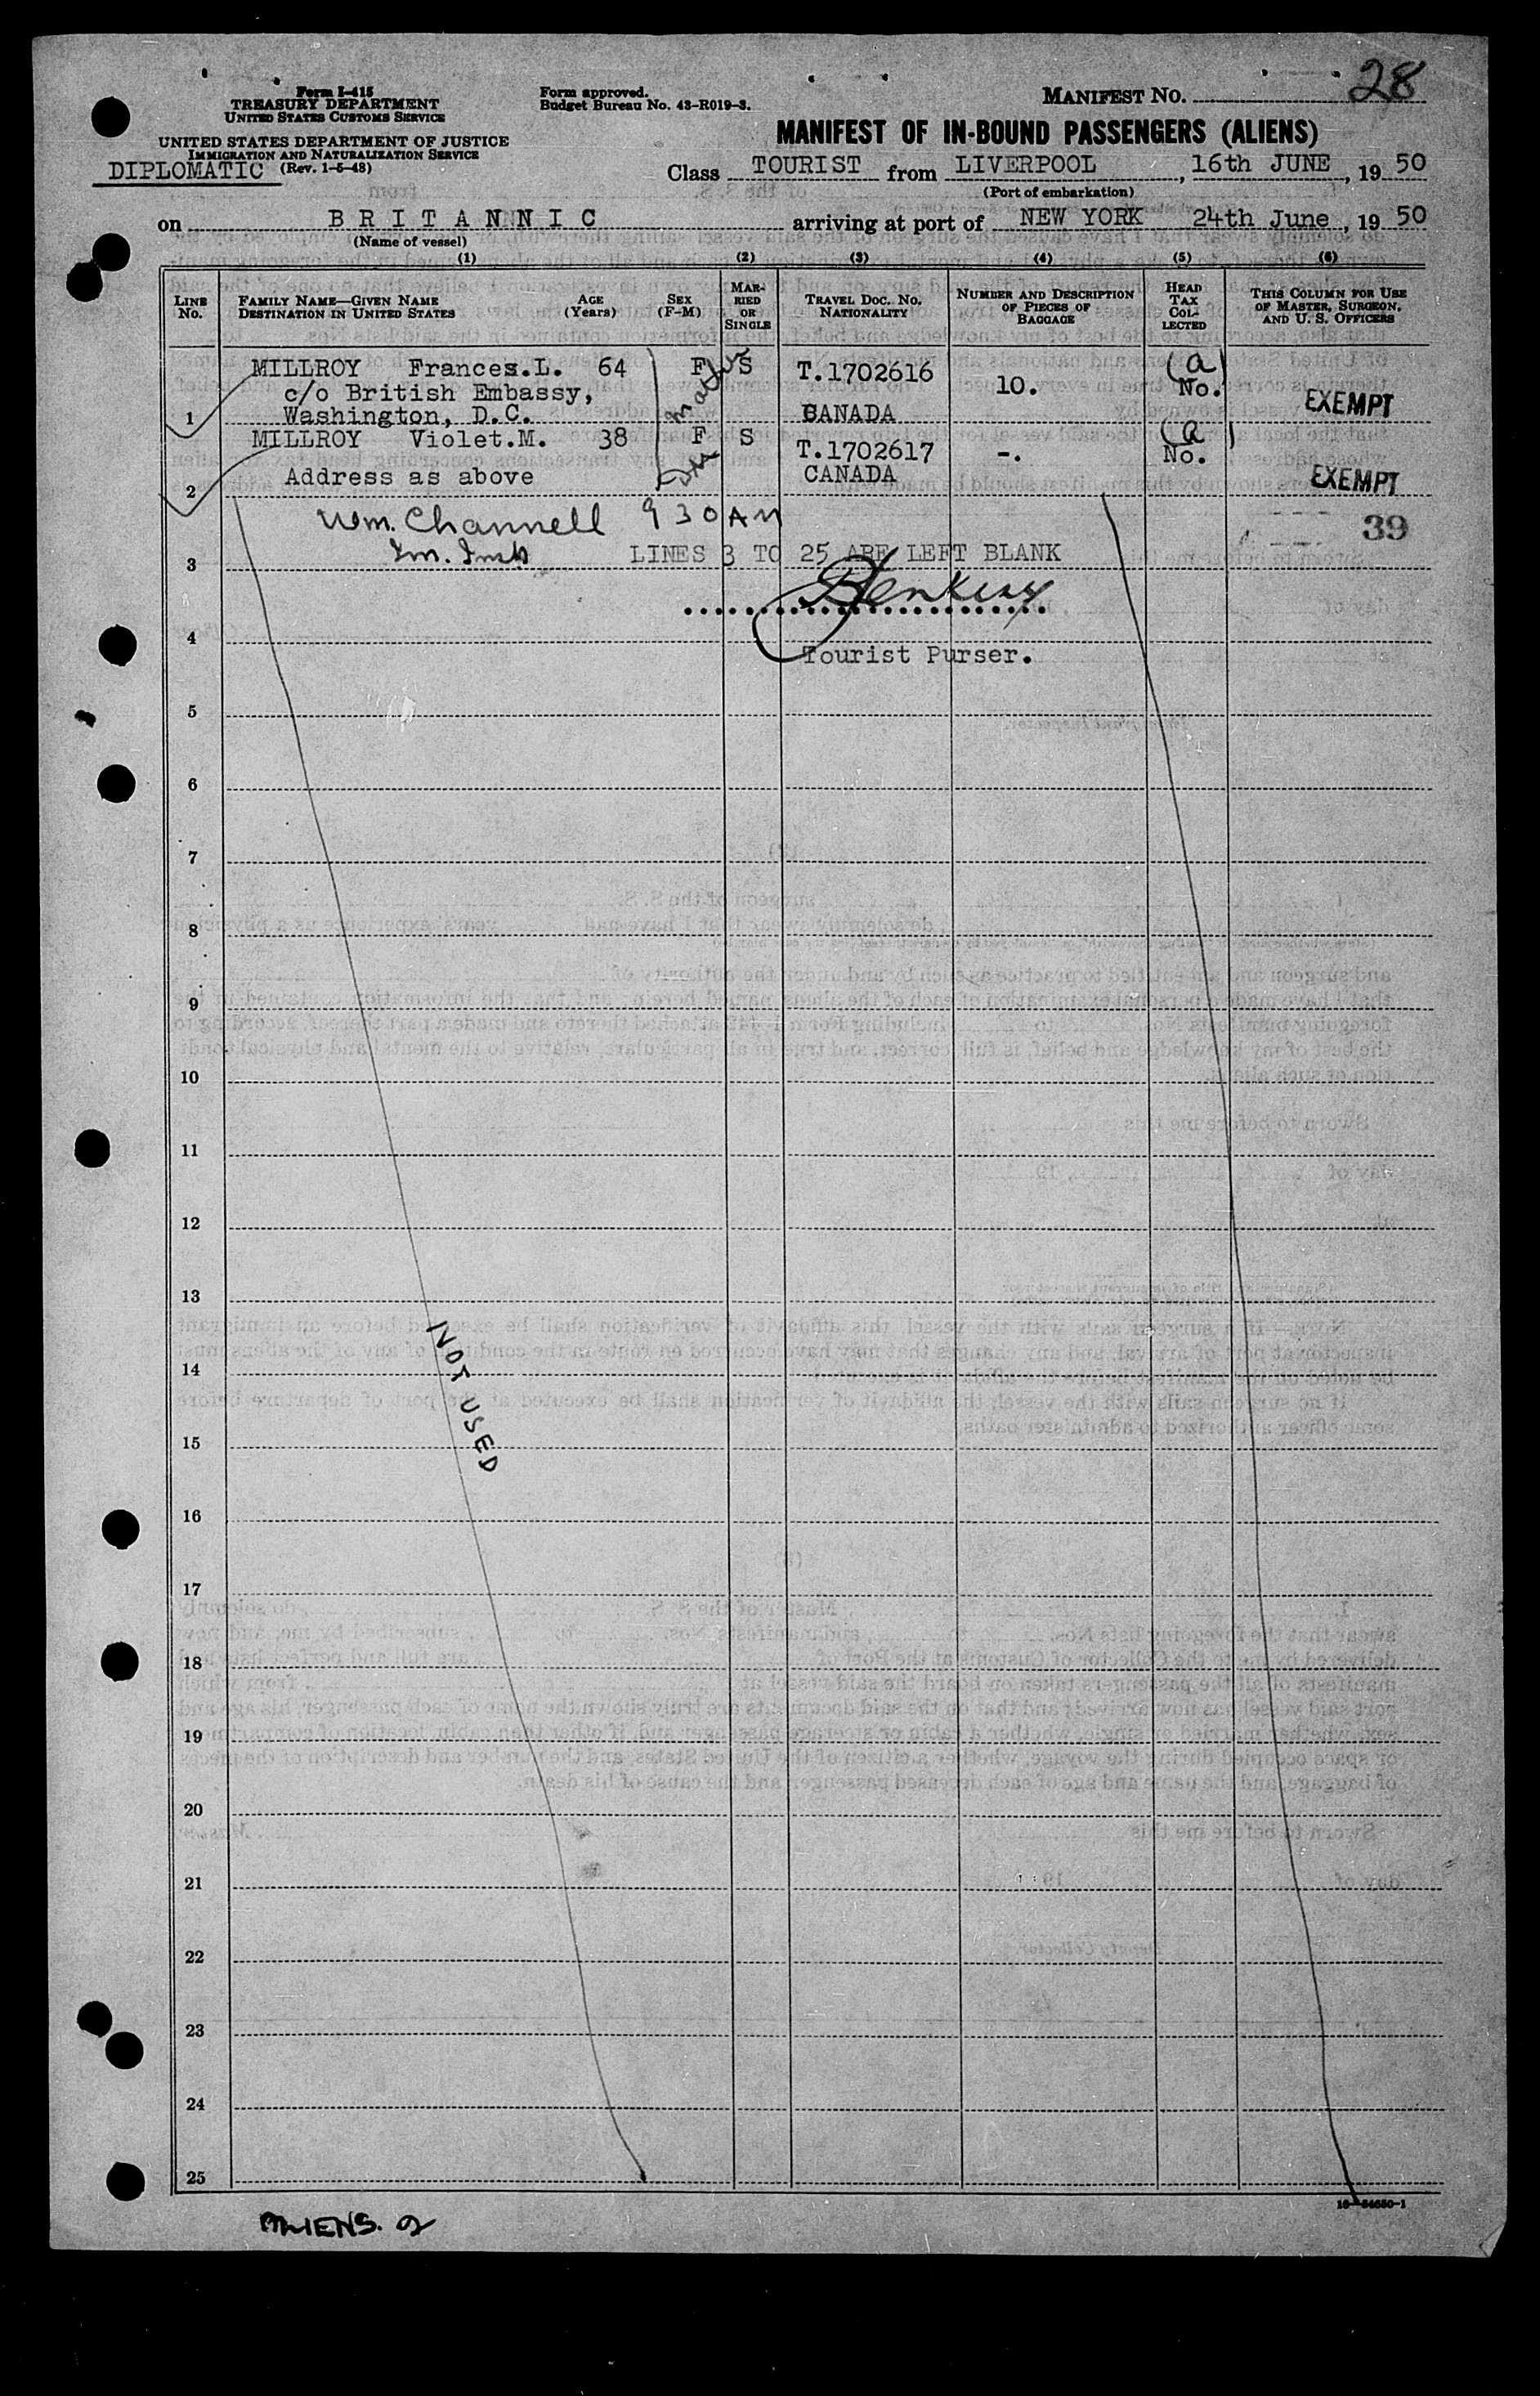 Form I-415
TREASURY DEPARTMENT
UNITED STATES CUSTOMS SERVICE
UNITED STATES DEPARTMENT OF JUSTICE
IMMIGRATION AND NATURALIZATION SERVICE
DIPLOMATIC (Rev. 1-5-48)
Form approved.
Budget Bureau No. 43-R019-3.
MANIFEST NO. 28
MANIFEST OF IN-BOUND PASSENGERS (ALIENS)
Class TOURIST from LIVERPOOL, 16th JUNE, 19 50
(Port of embarkation)
on BRITANNIC arriving at port of NEW YORK 24th June, 19 50
(Name of vessel)
(1) (2) (3) (4) (5) (6)
LINE No. FAMILY NAME—GIVEN NAME DESTINATION IN UNITED STATES AGE (Years) SEX (F-M) MARRIED OR SINGLE TRAVEL DOC. NO. NATIONALITY NUMBER AND DESCRIPTION OF PIECES OF BAGGAGE HEAD TAX COLLECTED THIS COLUMN FOR USE OF MASTER, SURGEON, AND U. S. OFFICERS
MILLROY Frances.L. 64 F S T.1702616 10. (a) No. EXEMPT
c/o British Embassy,
1 Washington, D.C. CANADA
MILLROY Violet.M. 38 F S T.1702617 -. (a) No. EXEMPT
2 Address as above CANADA
Wm. Channell 9 30 AM 39
3 LINES 3 TO 25 ARE LEFT BLANK
4
Tourist Purser.
5
6
7
8
9
10
11
12
13
NOT USED
14
15
16
17
18
19
20
21
22
23
24
25
16-54650-1
ALIENS. 2